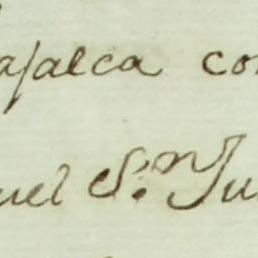 ajalca con
uel S.n Ju